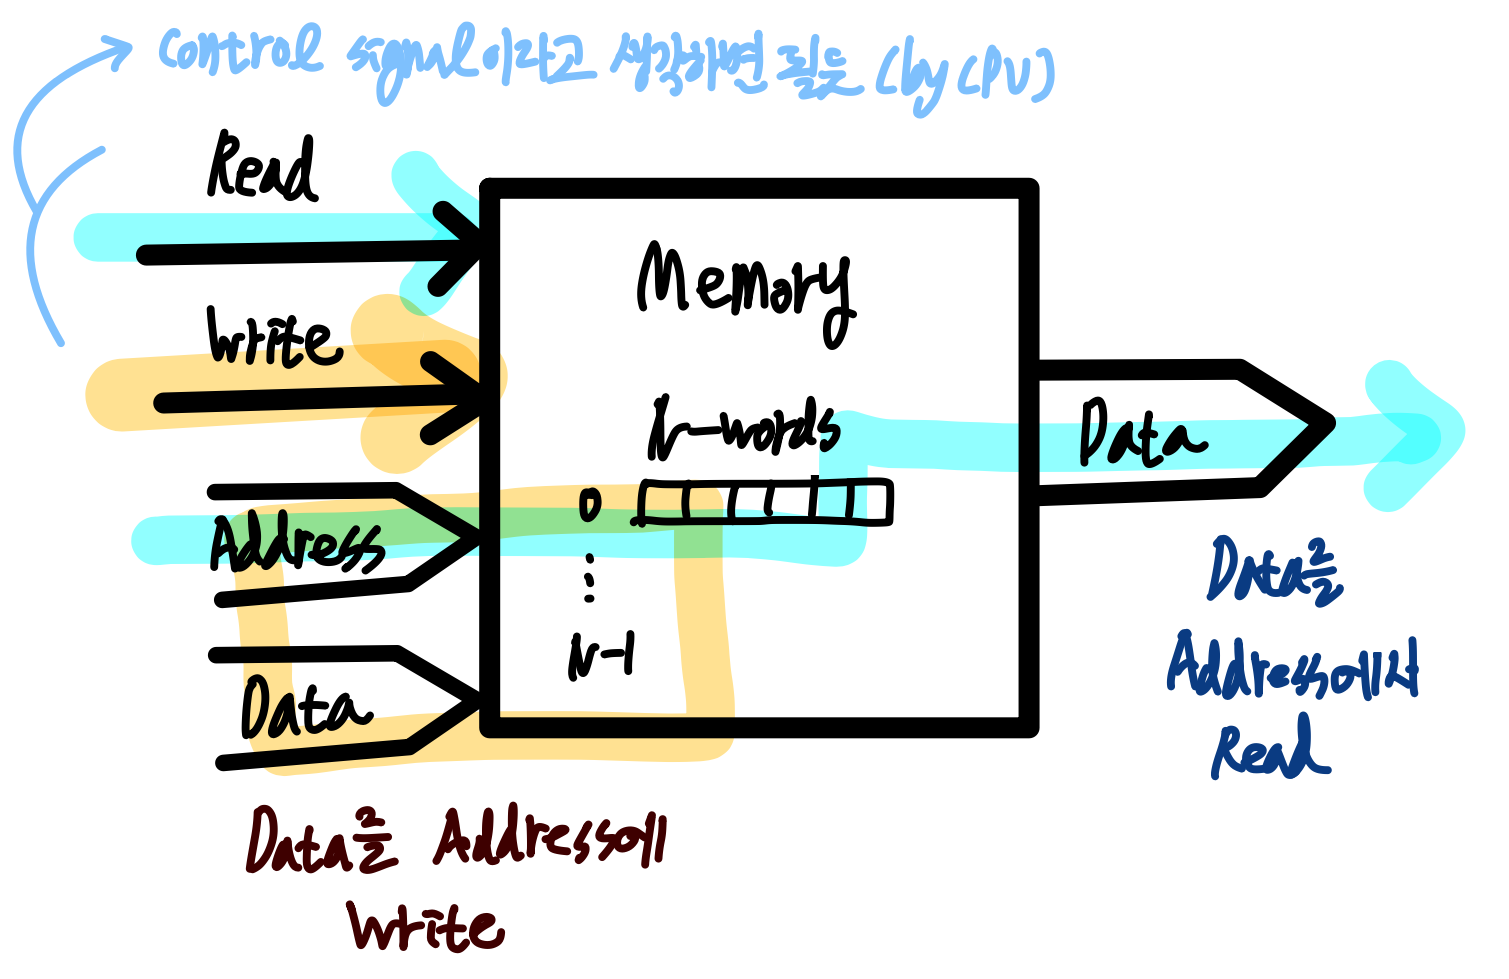 Control signal이라고 생각하면 될듯 (by CPU)
Read
Write
Address
Data
Memory
N-words
0
N-1
Data
Data를
Address에서
Read
Data를 Address에
Write